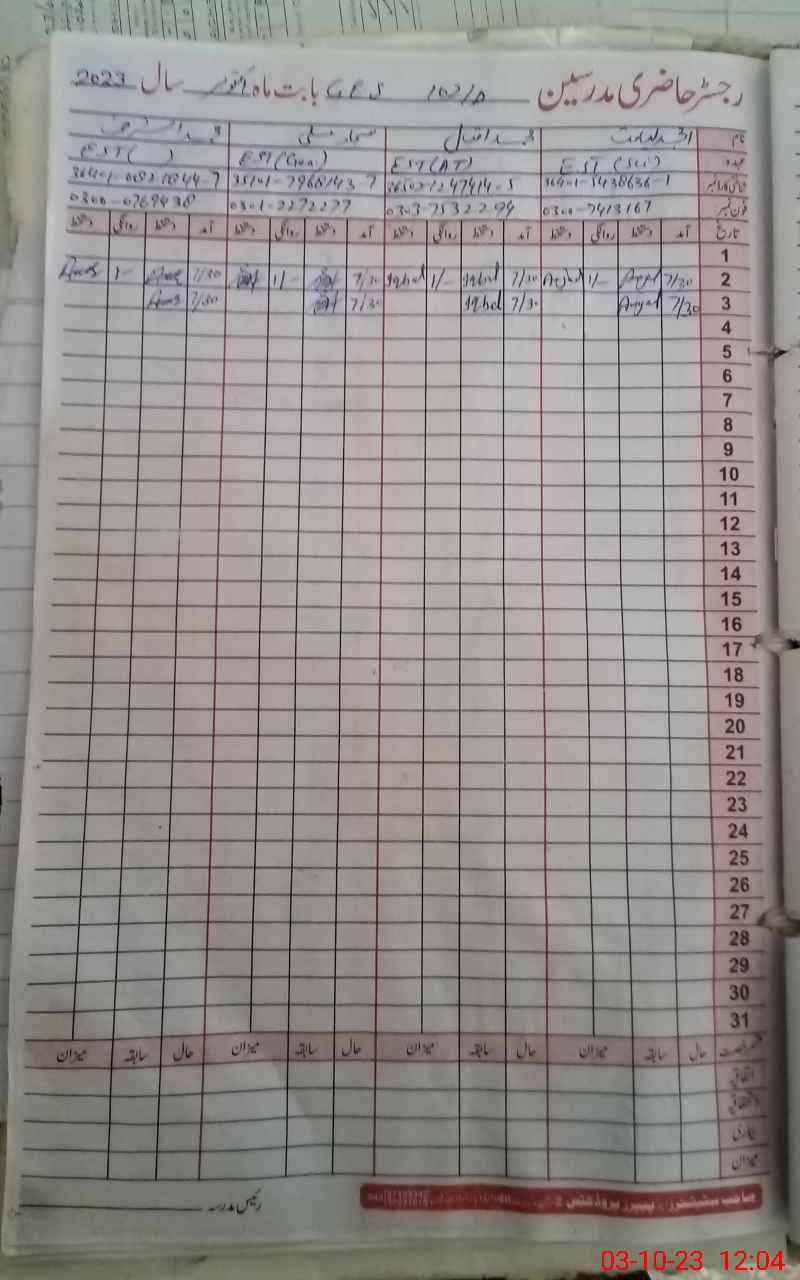 رجسٹر حاضری مدرسین GES 102/D بابت ماہ اکتوبر سال 2023
نام محمد اقبال محمد اشرف
عہدہ EST (Sci) EST (AT) EST (Gen) EST ( )
شناختی کارڈ نمبر 36401-5438636-1 36502-1247414-5 35101-7968143-7
فون نمبر 0300-7413167 0303-7532294 0301-2272277 0300-0769438
تاریخ آمد دستخط روانگی دستخط آمد دستخط روانگی دستخط آمد دستخط روانگی دستخط آمد دستخط روانگی دستخط
1
2 7/30 Amjad 1/- Amjad 7/30 Iqbal 1/- Iqbal 7/30 1/- 7/30 1-
3 7/30 Amjad 7/30 Iqbal 7/30 7/30
4
5
6
7
8
9
10
11
12
13
14
15
16
17
18
19
20
21
22
23
24
25
26
27
28
29
30
31
قسم رخصت حال سابقہ میزان حال سابقہ میزان حال سابقہ میزان حال سابقہ میزان
اتفاقیہ
استحقاقیہ
بیماری
میزان
رئیس مدرسہ
03-10-23 12:04